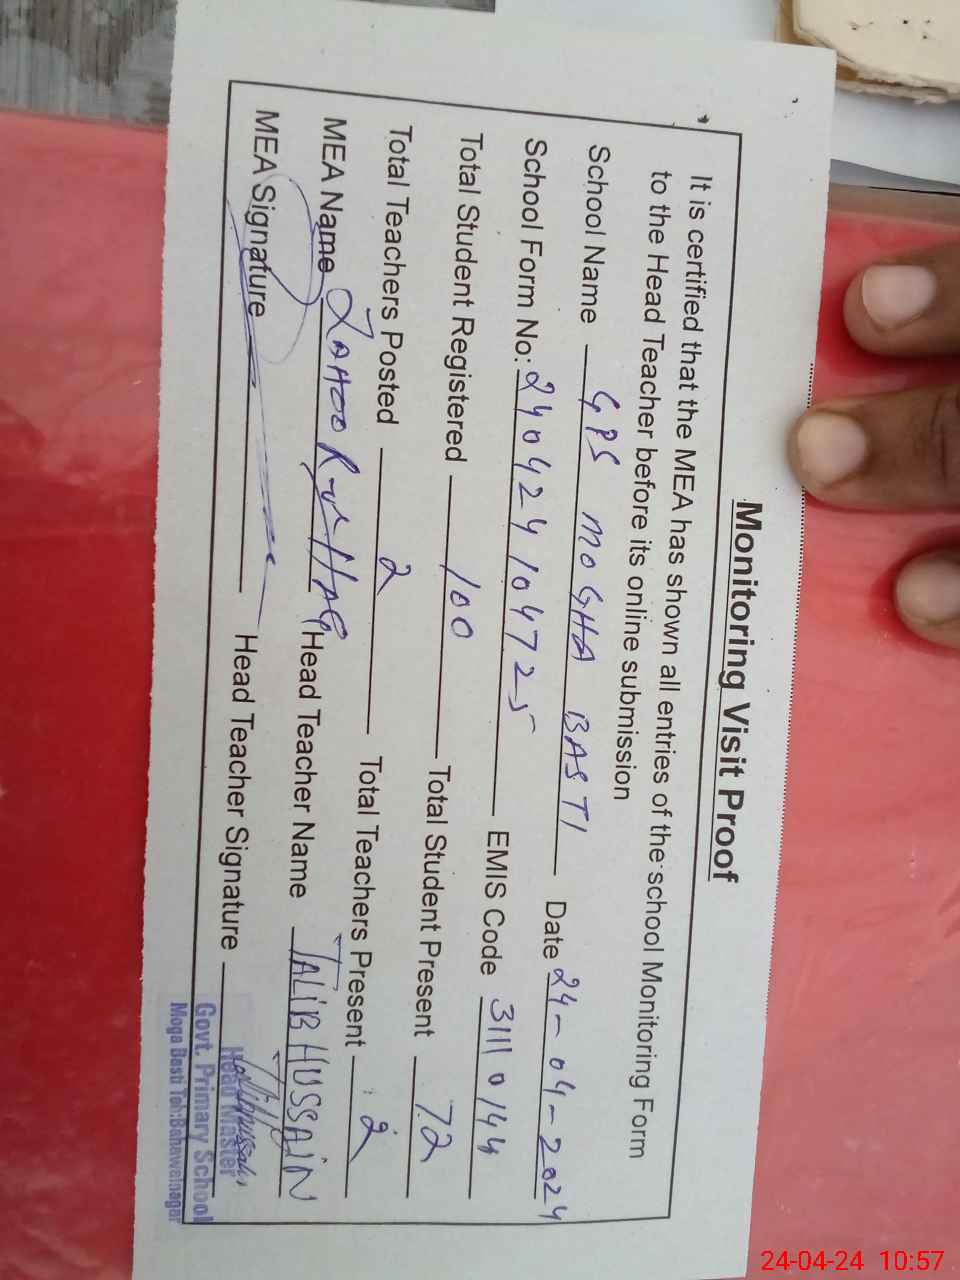 Monitoring Visit Proof
It is certified that the MEA has shown all entries of the school Monitoring Form
to the Head Teacher before its online submission
School Name GPS MOGHA BASTI Date 24-04-2024
School Form No: 24042410 4725 EMIS Code 31110144
Total Student Registered 100 Total Student Present 72
Total Teachers Posted 2 Total Teachers Present 2
MEA Name ZAHOOR ul HAQ Head Teacher Name TALIB HUSSAIN
MEA Signature Head Teacher Signature
Head Master
Govt. Primary School
Moga Basti Teh: Bahawalnagar
24-04-24 10:57